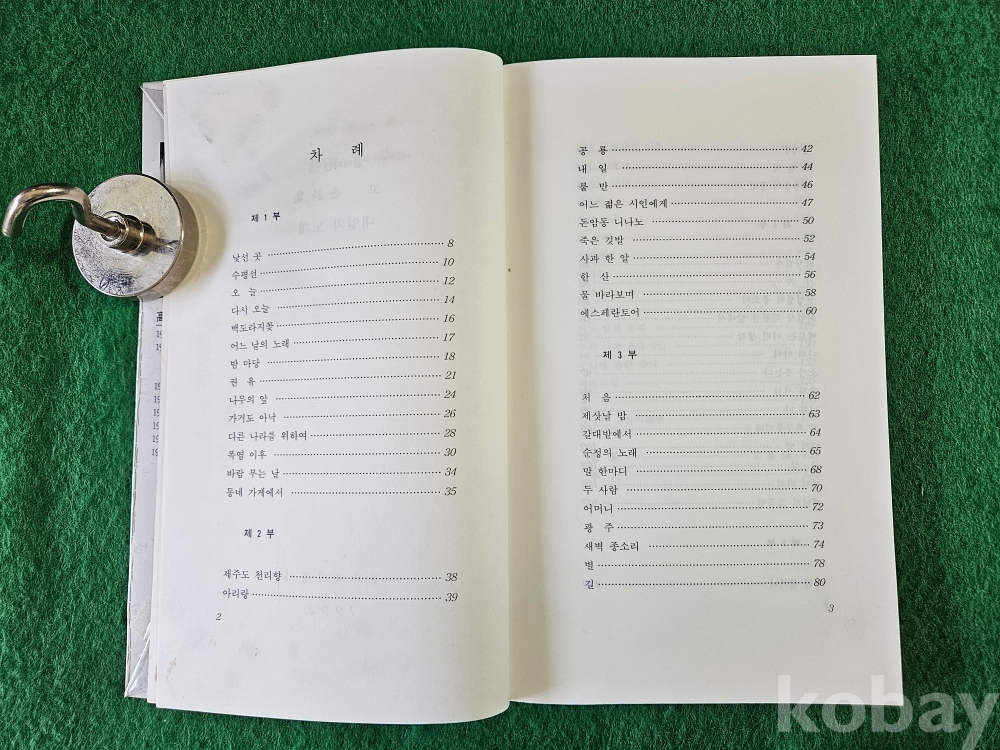 차 례
제 1 부
낯선 곳 8
수평선 10
오 늘 12
다시 오늘 14
백도라지꽃 16
어느 날의 노래 17
밤 마당 18
권 유 21
나무의 앞 24
가거도 아낙 26
다른 나라를 위하여 28
폭염 이후 30
바람 부는 날 34
동네 가게에서 35
제 2 부
제주도 천리향 38
아리랑 39
2
공 룡 42
내 일 44
불 만 46
어느 젊은 시인에게 47
돈암동 니나노 50
죽은 깃발 52
사과 한 알 54
한 산 56
물 바라보며 58
에스페란토어 60
제 3 부
처 음 62
제삿날 밤 63
갈대밭에서 64
순정의 노래 65
말 한마디 68
두 사람 70
어머니 72
광 주 73
새벽 종소리 74
별 78
길 80
3
kobay